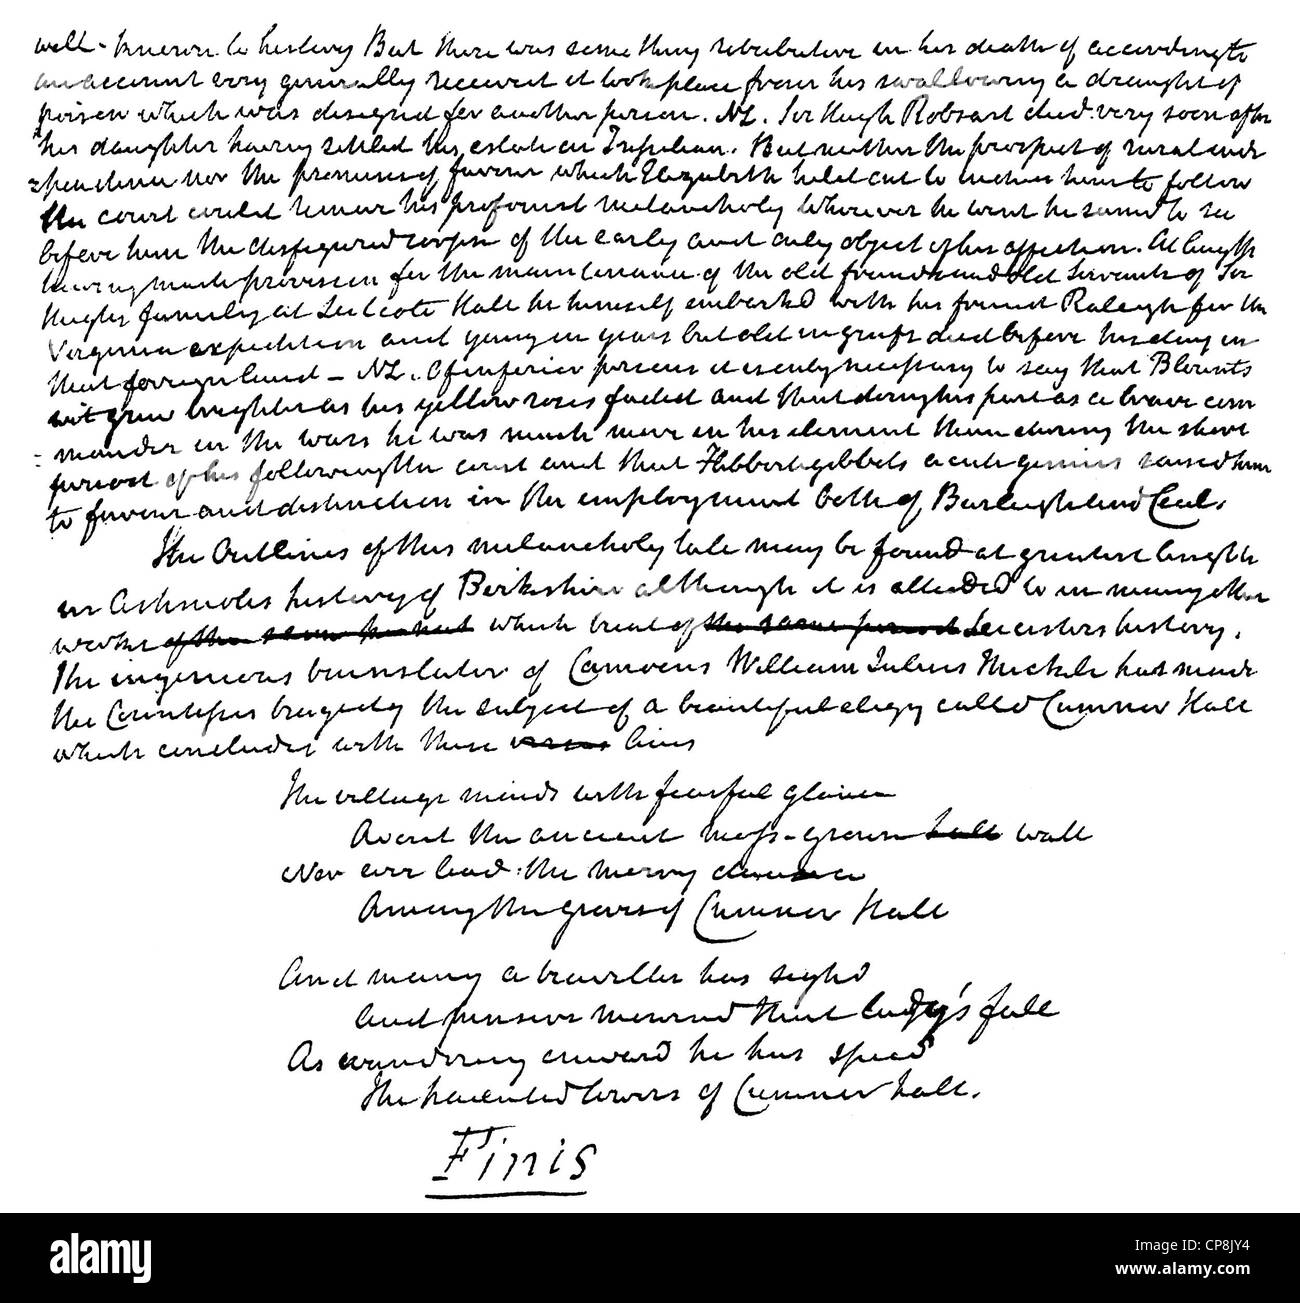 well-known to history But there was something retributive in his death if according to
an account very generally received it took place from his swallowing a draught of
poison which was designd for another person. NL. Sir Hugh Robsart died very soon after
his daughter having settled his estate on Tresilian. But neither the prospect of rural inde
=pendence nor the promises of favour which Elizabeth held out to induce him to follow
the court could remove his profound melancholy Wherever he went he seemd to see
before him the disfigured corpse of the early and only object of his affection. At length
having made provision for the maintenance of the old friends and old servants of Sir
Hugh's family at Lidcote Hall he himself embarkd with his friend Raleigh for the
Virginia expedition and young in years but old in griefs died before his day in
that foreign land - NL. Of inferior persons it is only necessary to say that Blounts
wit grew brighter as his yellow roses faded and that doing his part as a brave com
=mander in the wars he was much more in his element than during the short
period of his following the court and that Flibbertigibbets acute genius raised him
to favour and distinction in the employment both of Burleigh and Cecil.
The Outlines of this melancholy tale may be found at greatest length
in Ashmoles history of Berkshire although it is alluded to in many other
works of the same which treat of the same period Leicesters history.
The ingenious translator of Camoens William Julius Mickle has made
the Countesses tragedy the subject of a beautiful elegy called Cumnor Hall
which concludes with these verses lines
The village maids with fearful glance
Avoid the ancient moss-grown hall wall
Nor ever lead the merry dance
Among the groves of Cumnor Hall
And many a traveller has sighd
And pensive mournd that lady's fall
As wandering onward he has spied
The haunted towers of Cumnor hall.
Finis
alamy
Image ID: CP8JY4
www.alamy.com